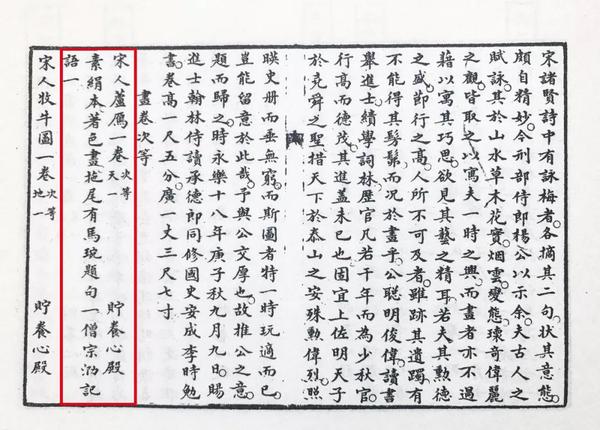 宋諸賢詩中有詠梅者各摘其二句狀其意態
頗自精妙今刑部侍郎楊公以示余夫古人之
賦詠其於山水草木花實烟雲變態瓌奇偉麗
之觀皆取之以寓夫一時之興而畫者亦不過
藉以寓其巧思欲見其藝之精耳若夫其勲德
之盛節行之高人所不可及者雖跡其遺躅有
不能得其髣髴而況於畫乎公聰明俊偉讀書
舉進士績學詞林歷官凡若干年而為少秋官
行高而德茂其進蓋未已也固宜上佐明天子
於堯舜之聖措天下於泰山之安殊勲偉烈照
暎史册而垂無窮而斯圖者特一時玩適而已
豈能留意於此哉予與公交厚也故推公之意
題而歸之時永樂十八年庚子秋九月九日賜
進士翰林侍讀承德郎同修國史安成李時勉
書卷高一尺五分廣一丈三尺七寸
畫卷次等
宋人蘆鴈一卷 次等天一 貯養心殿
素絹本著色畫拖尾有馬琬題句一僧宗泐記
語一
宋人牧牛圖一卷 次等地一 貯養心殿